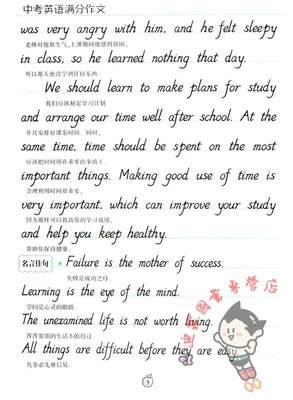 中考英语满分作文
was very angry with him, and he felt sleepy
老师对他很生气,上课期间他感到很困,
in class, so he learned nothing that day.
所以那天他没学到任何东西.
We should learn to make plans for study
我们应该制定学习计划
and arrange our time well after school. At the
并且安排好课余时间. 同时,
same time, time should be spent on the most
应该把时间用在重要的事情上.
important things. Making good use of time is
合理利用时间很重要,
very important, which can improve your study
因为那样可以提高你的学习成绩,
and help you keep healthy.
帮助你保持健康.
名言佳句 Failure is the mother of success.
失败是成功之母.
Learning is the eye of the mind.
学问是心灵的眼睛.
The unexamined life is not worth living.
浑浑噩噩的生活不值得过.
All things are difficult before they are easy.
凡事必先难后易.
5